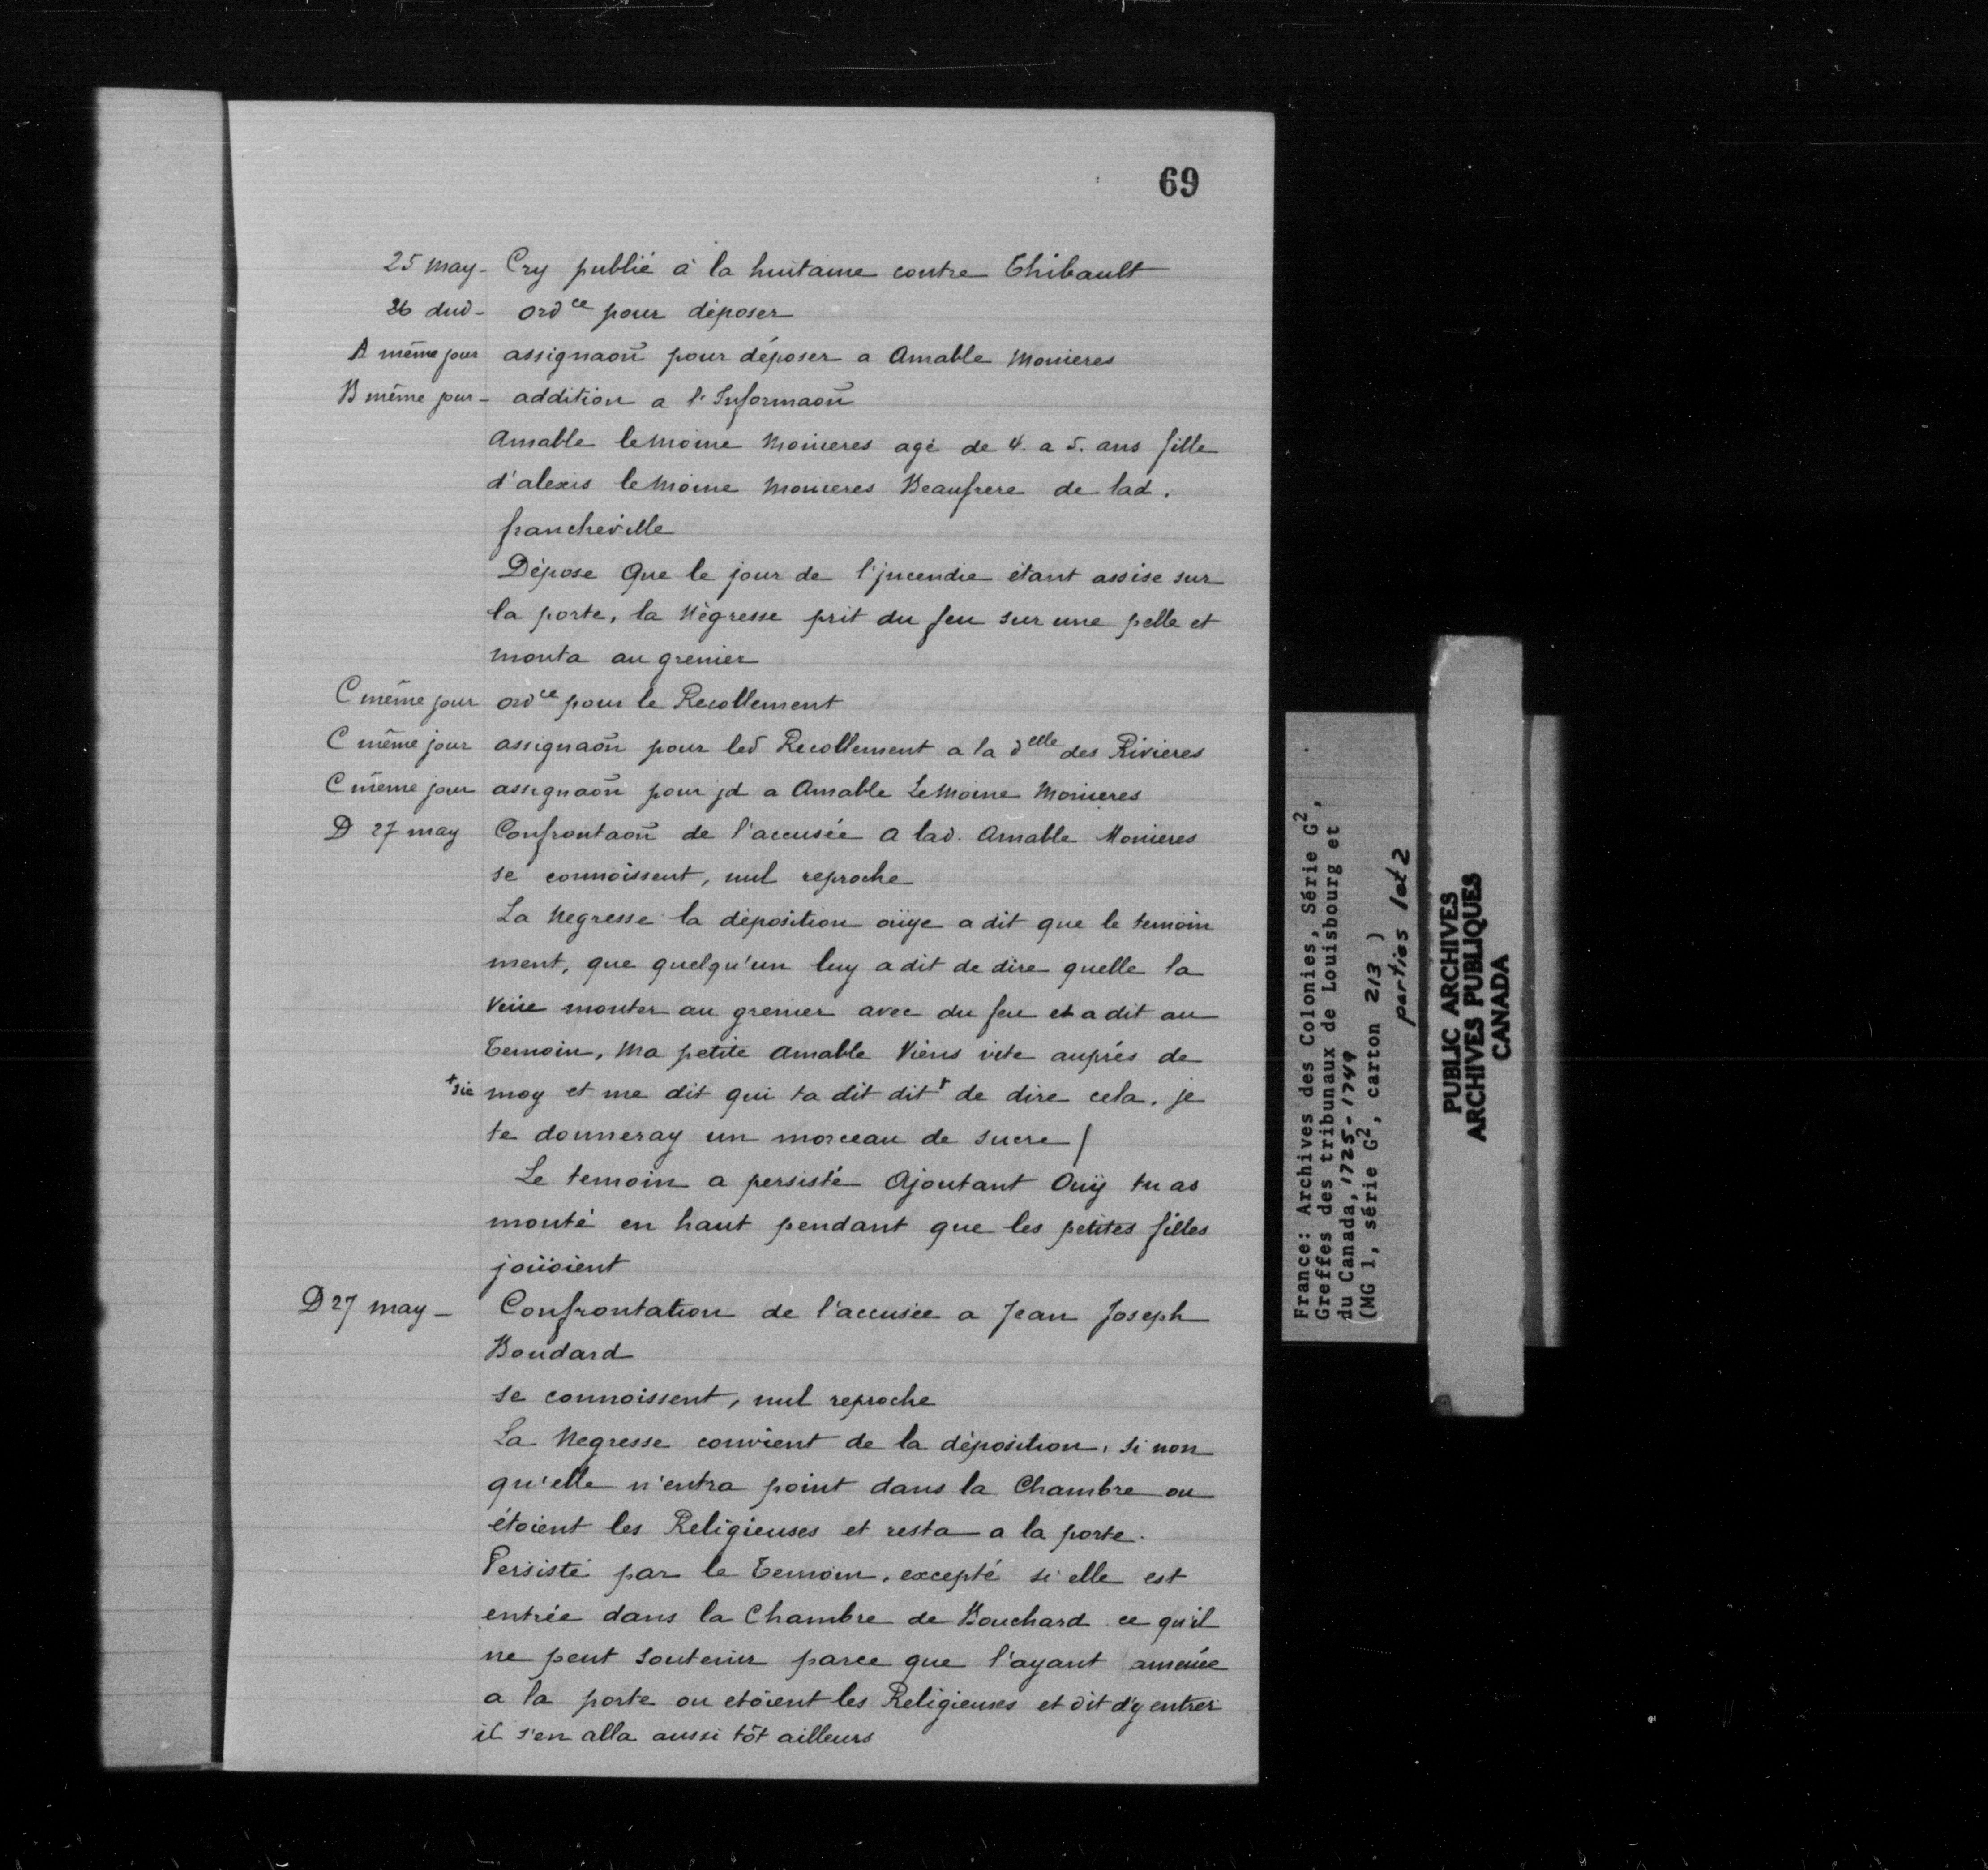 69
25 may - Cry publié à la huitaine contre Thibault
26 dud - ord ce pour déposer
A même jour assignaoñ pour déposer a Amable Monieres
B même jour - addition a l'Informaoñ
Amable lemoine Monieres agé de 4. a 5. ans fille
d'alexis lemoine Monieres Beaufrere de lad.
francheville
Dépose Que le jour de l'jncendie étant assise sur
la porte, la Négresse prit du feu sur une pelle et
monta au grenier
C même jour ord ce pour le Recollement
C même jour assignaoñ pour led Recollement a la d elle des Rivieres
C même jour assignaoñ pour jd a Amable LeMoine Monieres
D 27 may Confrontaoñ de l'accusée a lad. Amable Monieres
se connoissent, nul reproche
La Negresse la déposition oüye a dit que le temoin
ment, que quelqu'un luy a dit de dire quelle la
veüe monter au grenier avec du feu et a dit au
Temoin, Ma petite Amable Viens vite auprés de
+sic moy et me dit qui ta dit dit+ de dire cela, je
te donneray un morceau de sucre /
Le temoin a persisté Ajoutant Ouÿ tu as
monté en haut pendant que les petites filles
joüoient
D 27 may - Confrontation de l'accusée a Jean Joseph
Boudard
se connoissent, nul reproche
La Negresse convient de la déposition, si non
qu'elle n'entra point dans la Chambre ou
étoient les Religieuses et resta a la porte.
Persisté par le Temoin, excepté si elle est
entrée dans la Chambre de Bouchard ce qu'il
ne peut soutenir parce que l'ayant amenée
a la porte ou etoient les Religieuses et dit d'y entrer
il s'en alla aussi tôt ailleurs
France: Archives des Colonies, Série G2,
Greffes des tribunaux de Louisbourg et
du Canada, 1725-1749
(MG 1, série G2, carton 213)
parties 1 et 2
PUBLIC ARCHIVES
ARCHIVES PUBLIQUES
CANADA